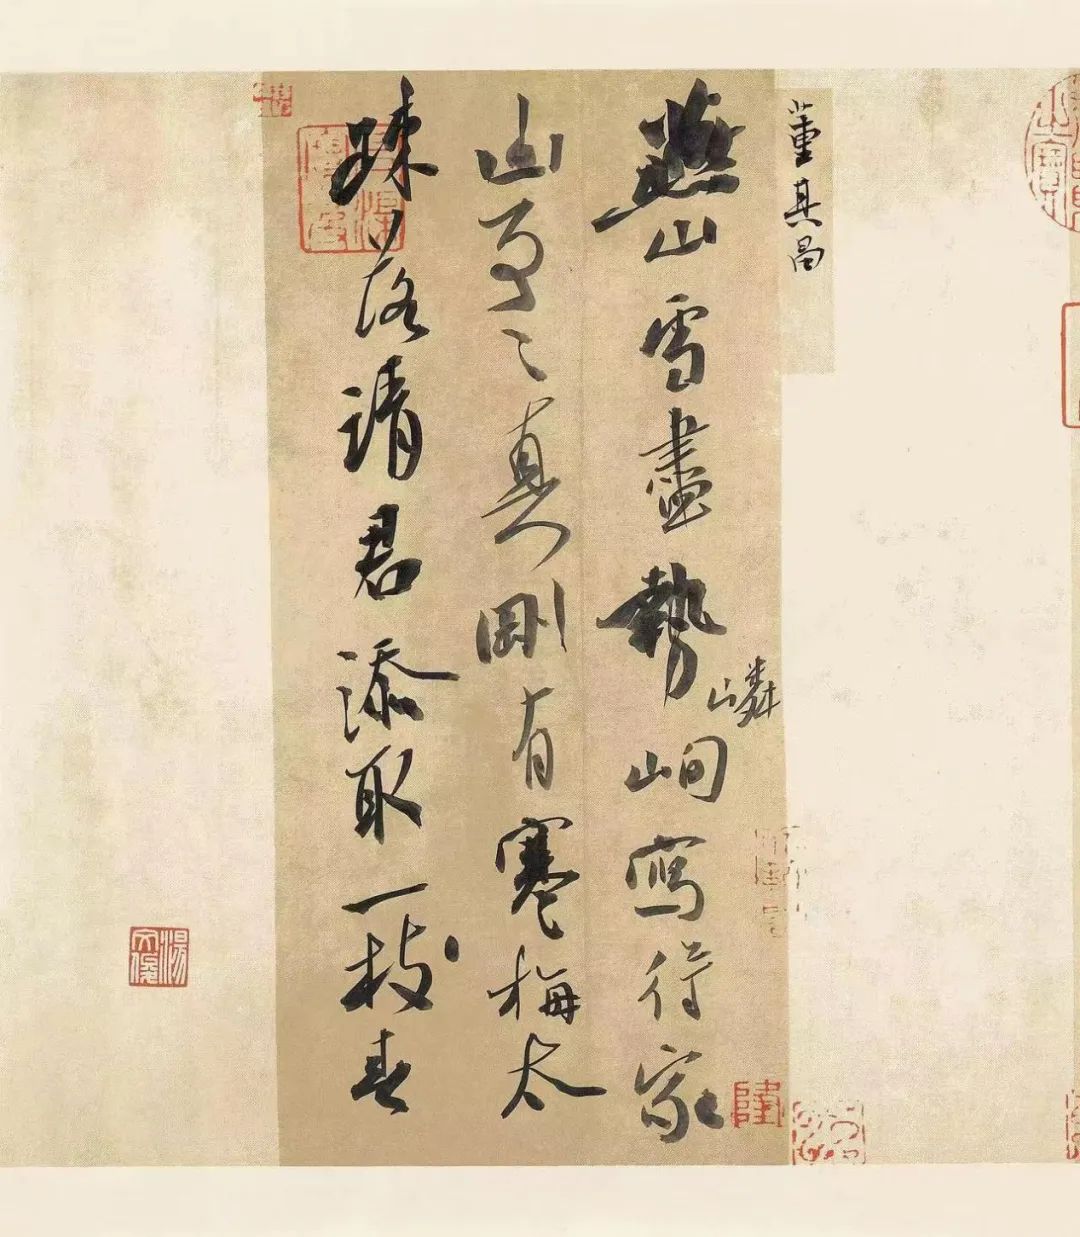 董其昌
燕山雪盡勢嶙峋寫得家
山事〻真剛有寒梅太
疎落請君添取一枝春